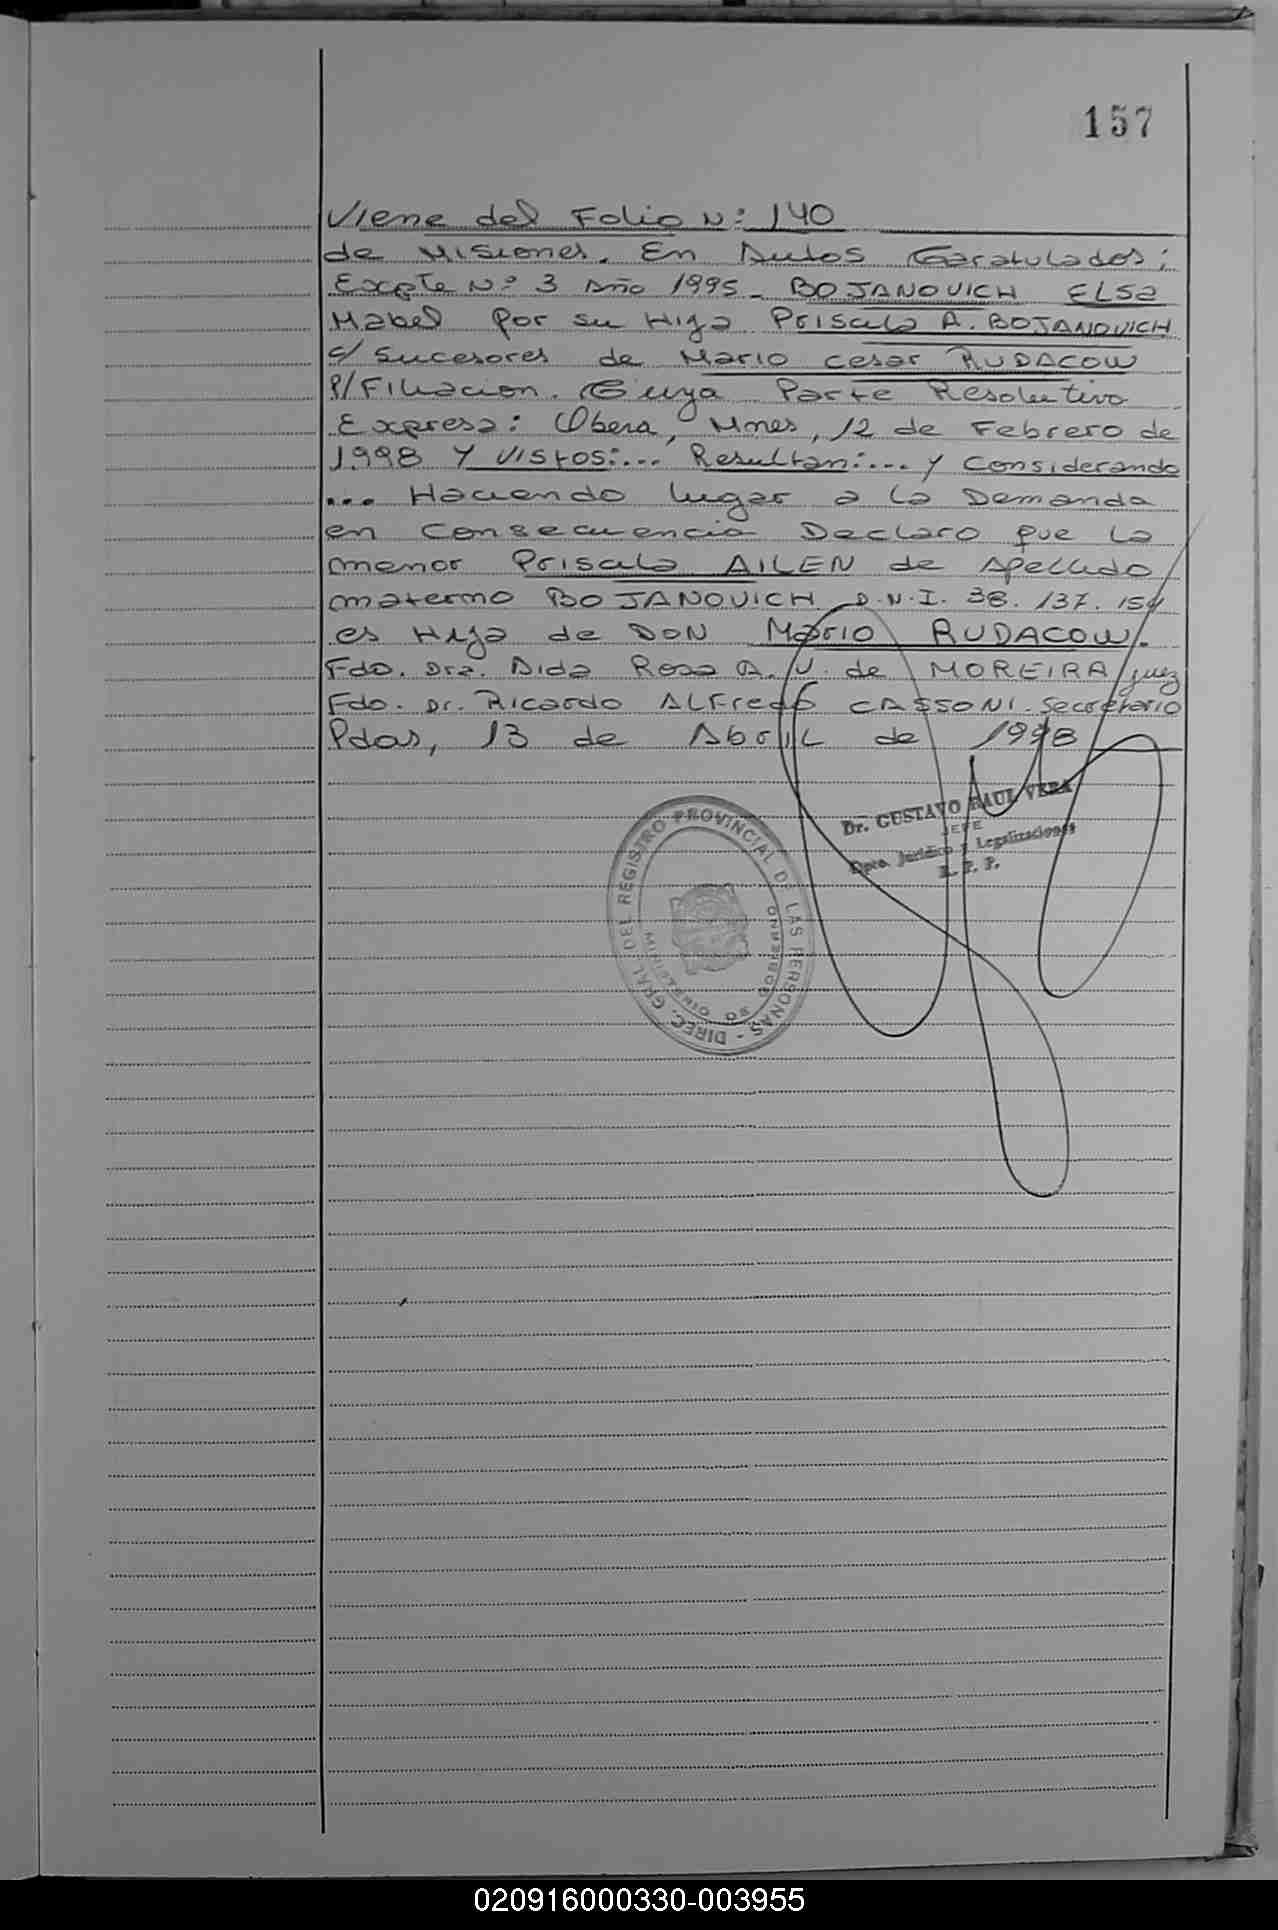 157
Viene del Folio N: 140
de Misiones. En Autos Caratulados;
Expte N° 3 Año 1995 - BOJANOVICH ELSA
Mabel por su Hija Priscila A. BOJANOVICH
c/ Sucesores de Mario Cesar RUDACOW
P/Filiacion. Cuya Parte Resolutiva
Expresa: Obera, Mnes, 12 de Febrero de
1998 Y Vistos:... Resultan:... y Considerando
... Haciendo lugar a la Demanda
en Consecuencia Declaro que la
menor Priscila AILEN de Apellido
materno BOJANOVICH D.N.I. 38.137.154
es Hija de DON Mario RUDACOW.
Fdo. Dra. Aida Rosa A. V. de MOREIRA juez
Fdo. Dr. Ricardo ALFredo CASSONI. Secretario
Pdas, 13 de Abril de 1998
Dr. GUSTAVO RAUL VERA
JEFE
Dpto. Jurídico y Legalizaciones
R. P. P.
DIREC. GRAL. DEL REGISTRO PROVINCIAL DE LAS PERSONAS -
MINISTERIO DE GOBIERNO
020916000330-003955